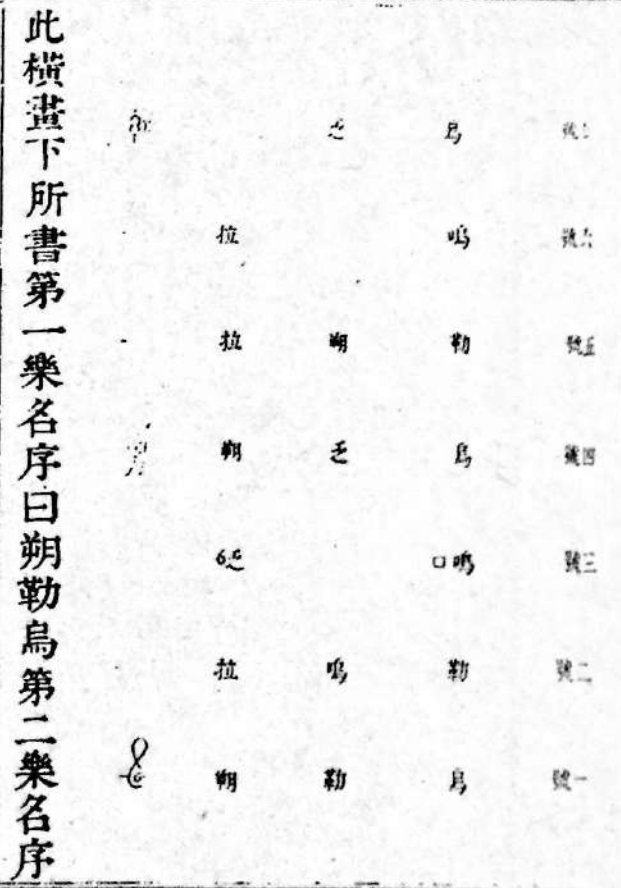 七號 烏 乏
六號 鳴 拉
五號 勒 朔 拉
四號 烏 乏 朔
三號 鳴口 乏
二號 勒 鳴 拉
一號 烏 勒 朔
此橫畫下所書第一樂名序曰朔勒烏第二樂名序